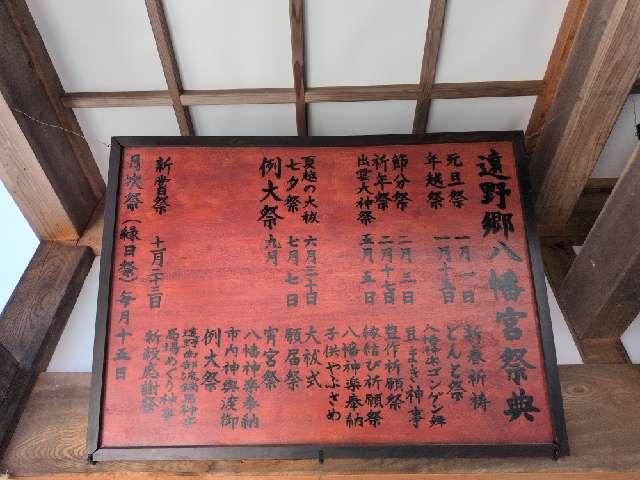 遠野郷八幡宮祭典
元旦祭 一月一日 新春祈祷
年越祭 一月十五日 どんと祭
八幡神楽ゴンゲン舞
節分祭 二月三日 豆まき神事
祈年祭 二月十七日 豊作祈願祭
出雲大神祭 五月五日 縁結び祈願祭
八幡神楽奉納
子供やぶさめ
夏越の大祓 六月三十日 大祓式
七夕祭 七月七日 願届祭
例大祭 九月 宵宮祭
八幡神楽奉納
市内神輿渡御
例大祭
遠野南部流鏑馬神事
馬場めぐり神事
新嘗祭 十一月二十三日 新穀感謝祭
月次祭(縁日祭) 毎月十五日